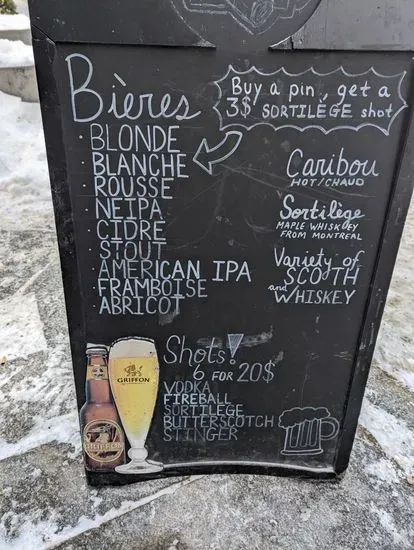 Bières
Buy a pin, get a
3$ SORTILÈGE shot
· BLONDE
· BLANCHE
· ROUSSE
· NEIPA
· CIDRE
· STOUT
· AMERICAN IPA
· FRAMBOISE
· ABRICOT
Caribou
HOT/CHAUD
Sortilège
MAPLE WHISKEY
FROM MONTREAL
Variety of
SCOTH
and WHISKEY
Shots!
6 FOR 20$
VODKA
FIREBALL
SORTILEGE
BUTTERSCOTCH
STINGER
GRIFFON
GRIFFON